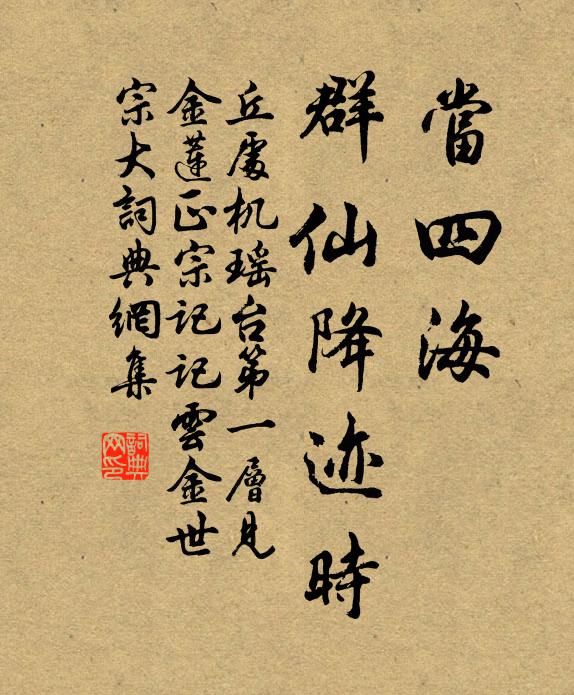 當四海
群仙降迹時
丘處机瑶台第一層見
金蓮正宗记记雲金世
宗大詞典網集
詞典
网印